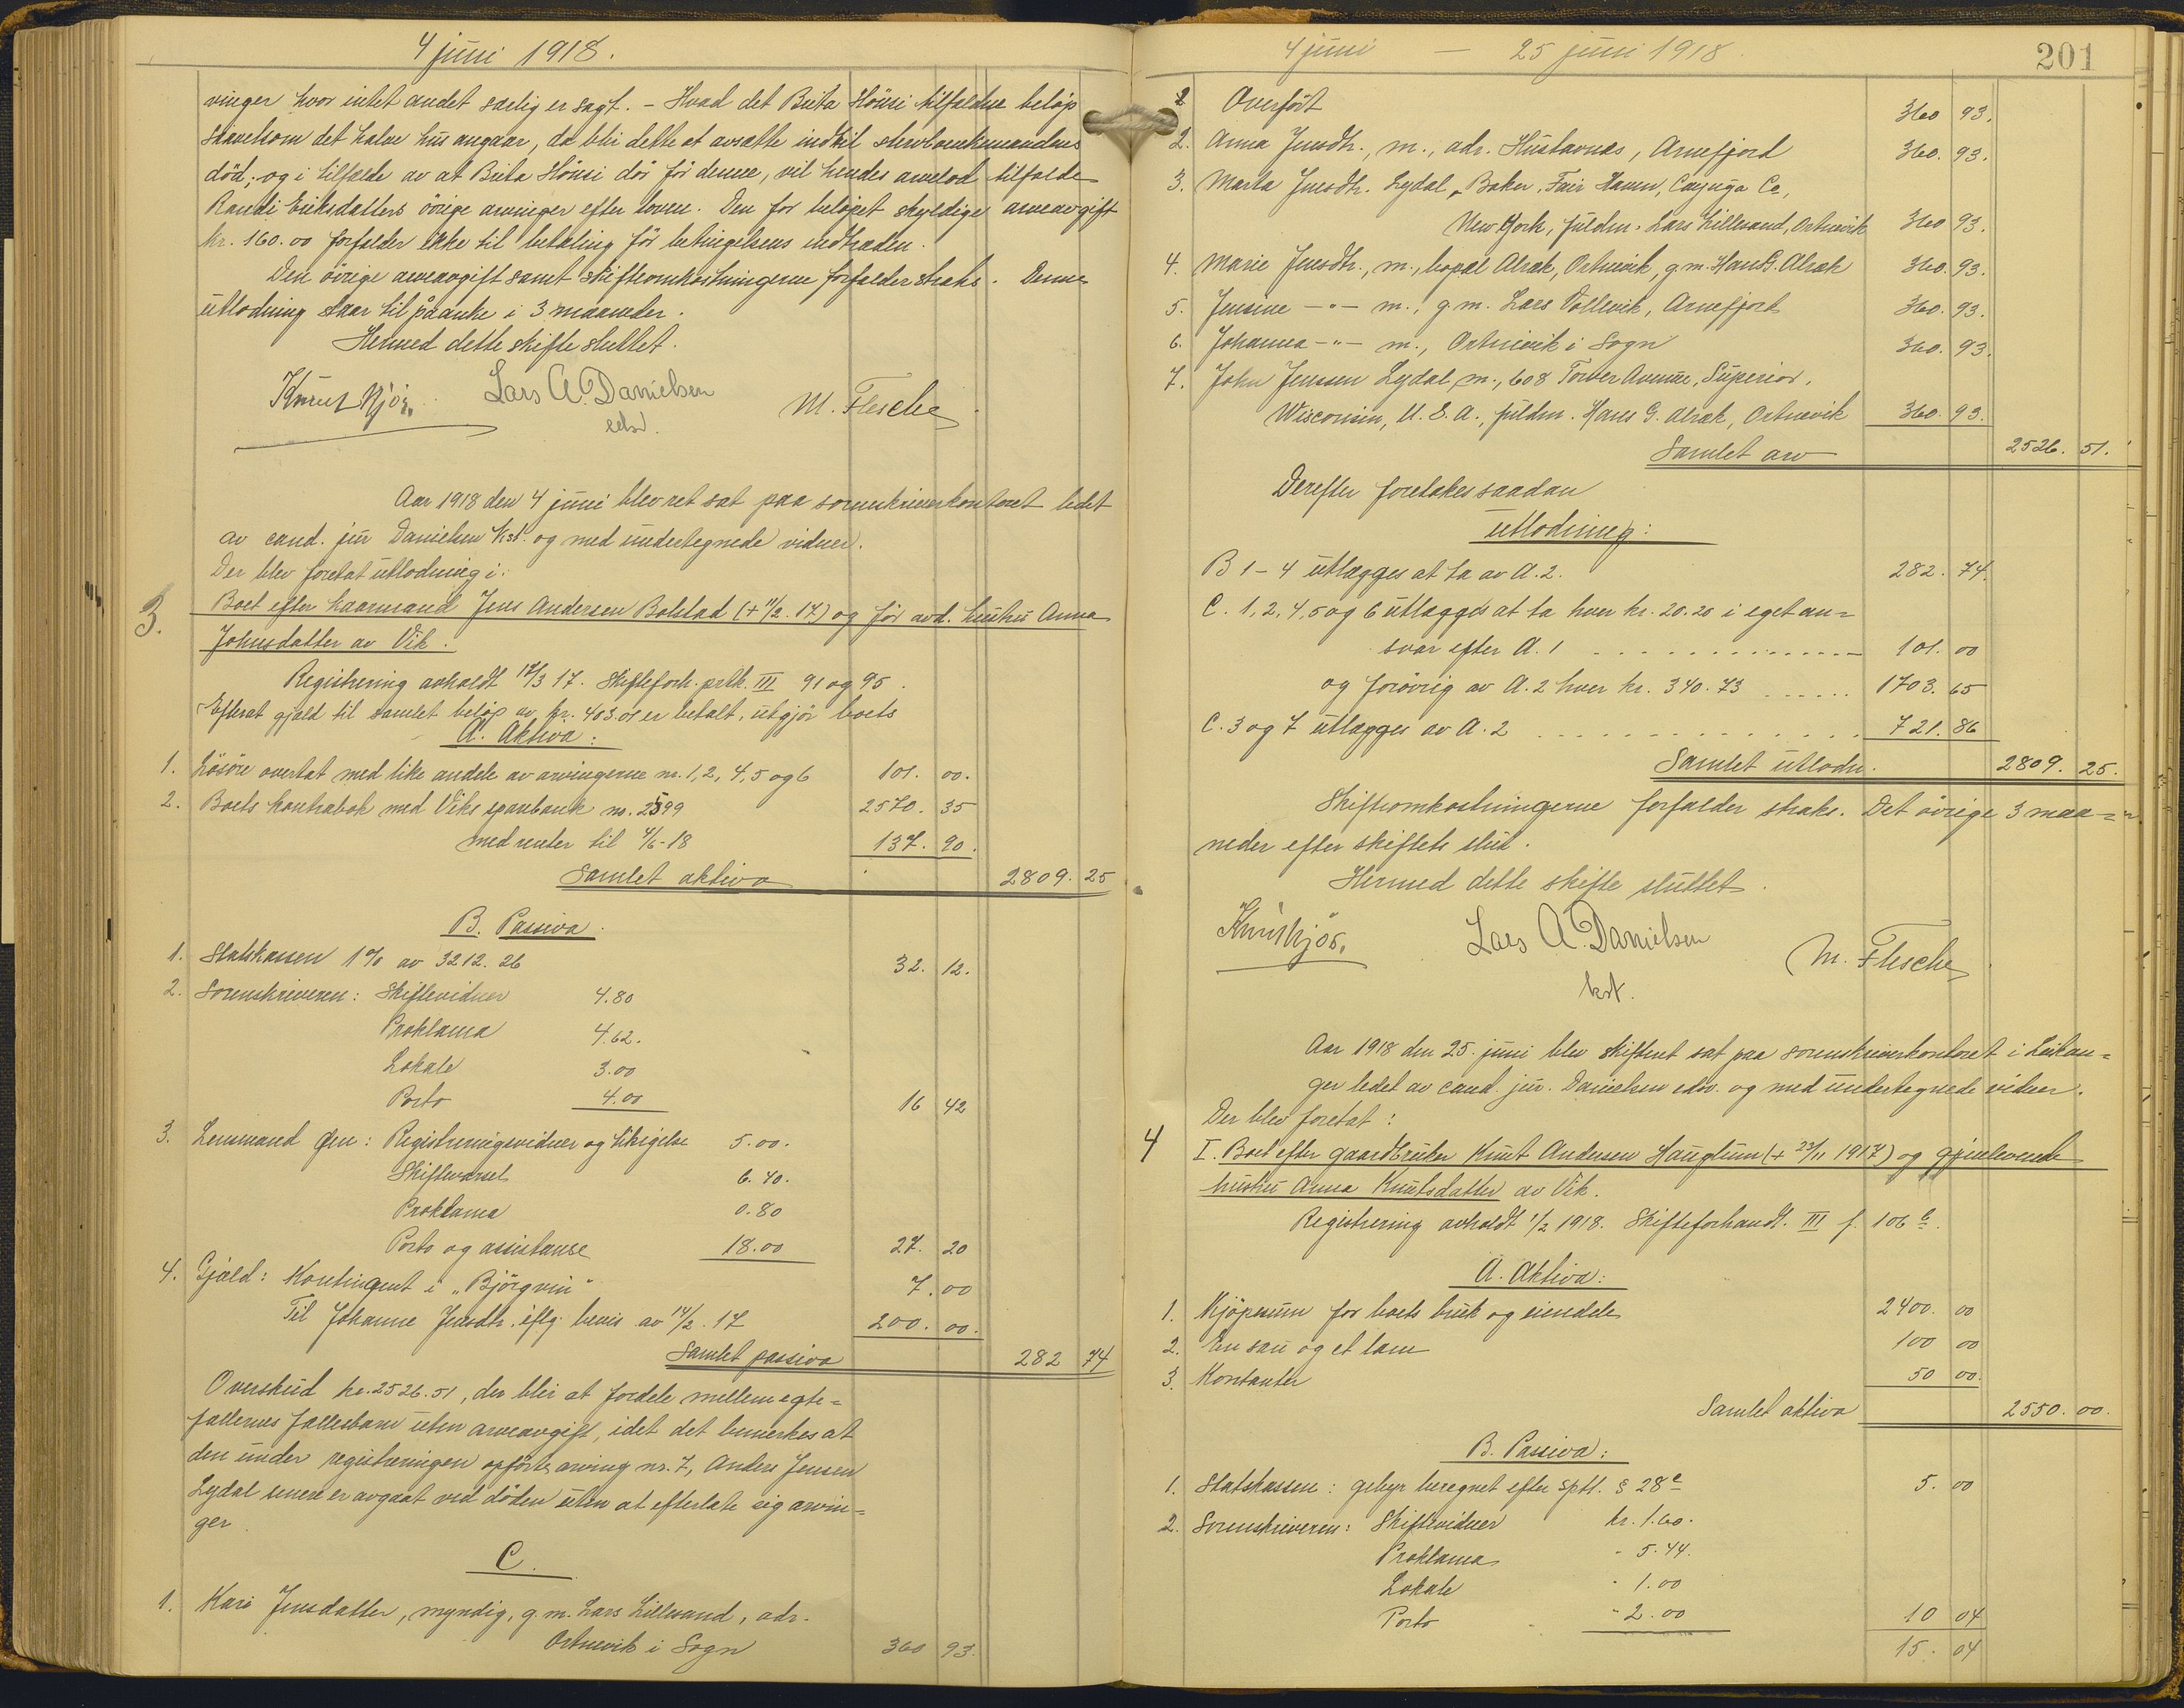 4 juni 1918.
vinger hvor intet andet særlig er sagt. – Hvad det Brita Hönsi tilfaldne beløp
saavelsom det halve hus angaar, da blir dette at avsætte indtil
död; og i tilfælde av at Brita Hönsi dör för denne, vil hendes arvelod tilfalde
Randi Eriksdatters övrige arvinger efter loven. Den for belöpet skyldige arveavgift
kr. 160.00 forfalder ikke til betaling för betingelsens indtræden.
Den övrige arveavgift samt skifteomkostningerne forfalder straks. Denne
utlodning staar til påanke i 3 maaneder.
Hermed dette skifte sluttet.
Lars A. Danielsen M. Flesche
edsv.
Aar 1918 den 4 juni blev ret sat paa sorenskriverkontoret ledet
av cand. jur Danielsen kst. og med undertegnede vidner.
Der blev foretat utlodning i:
3. Boet efter kaarmand Jens Andersen Bolstad (+ 11/2. 17) og för avd. hustru Anna
Johnsdatter av Vik.
Registrering avholdt 12/3 17. Skifteforh. prtk. III 91 og 95.
Efterat gjæld til samlet beløp av kr. 403.01 er betalt, utgjör boets
A. Aktiva:
1. Lösöre overtat med like andele av arvingerne nr. 1, 2, 4, 5 og 6 101. 00.
2. Boets kontrabok med Viks sparebank no. 2599 2570. 35
med renter til 4/6-18 137. 90.
Samlet aktiva 2809. 25
B. Passiva.
1. Statskassen 1% av 3212. 26 32. 12.
2. Sorenskriveren: Skiftevidner 4.80
Proklama 4.62.
Lokale 3.00
Porto 4.00 16 42
3. Lensmand Øen: Registreringsvidner og tilsigelse 5.00.
Skiftevarsel 6.40.
Proklama 0.80
Porto og assistanse 18.00 27. 20
4. Gjæld: Kontingent i "Björgvin" 7. 00
Til Johanne Jensdtr. iflg. bevis av 14/2. 17 200. 00.
Samlet passiva 282 74
Overskud kr. 2526.51, der blir at fordele mellem egte-
fællernes fællesbarn uten arveavgift, idet det bemerkes at
den under registreringen opförte arving nr. 7, Anders Jensen
Lydal senere er avgaat ved döden uten at efterlate sig arvin-
ger.
C.
1. Kari Jensdatter, myndig, g.m. Lars Lillesand, adr.
Ortnevik i Sogn 360 93.
4 juni – 25 juni 1918. 201
Overfört 360 93.
2. Anna Jensdtr., m., adr. Hustavnes, Arnefjord 360. 93.
3. Marta Jensdtr. Lydal, Baker, Fair Haven, Cayuga Co,
New York, fuldm. Lars Lillesand, Ortnevik 360 93.
4. Marie Jensdtr., m., bopæl Alræk, Ortnevik, g.m. Hans G. Alræk 360. 93.
5. Jensine -"- m., g.m. Lars Vollevik, Arnefjord 360. 93.
6. Johanna -"- m., Ortnevik i Sogn 360. 93.
7. John Jenssen Lydal, m., 608 Tower Avenue, Superior,
Wisconsin, U.S.A., fuldm. Hans G. Alræk, Ortnevik 360. 93.
Samlet arv 2526. 51.
Derefter foretokes saadan
utlodning:
B 1-4 utlægges at ta av A. 2. 282. 74.
C. 1, 2, 4, 5 og 6 utlægges at ta hver kr. 20.20 i eget an-
svar efter A. 1 101. 00
og forövrig av A. 2 hver kr. 340. 73 1703. 65
C. 3 og 7 utlægges av A. 2 721. 86
Samlet utlodn. 2809. 25.
Skifteomkostningerne forfalder straks. Det övrige 3 maa-
neder efter skiftets slut.
Hermed dette skifte sluttet.
Lars A. Danielsen M. Flesche
kst.
Aar 1918 den 25. juni blev skifteret sat paa sorenskriverkontoret i Leikan-
ger ledet av cand. jur. Danielsen edsv. og med undertegnede vidner.
Der blev foretat:
4 I. Boet efter gaardbruker Knut Andersen Hauglum (+ 23/11 1917) og gjenlevende
hustru Anna Knutsdatter av Vik.
Registrering avholdt 1/2 1918. Skifteforhandl. III f. 106 b.
A. Aktiva:
1. Kjöpesum for boets bruk og eiendele 2400. 00
2. En sau og et lam 100 00
3. Kontanter 50 00.
Samlet aktiva 2550. 00.
B. Passiva:
1. Statskassen: gebyr beregnet efter sptl. § 28 c 5. 00
2. Sorenskriveren: Skiftevidner kr. 1.60.
Proklama " 5.44.
Lokale " 1.00
Porto " 2.00 10 04
15. 04